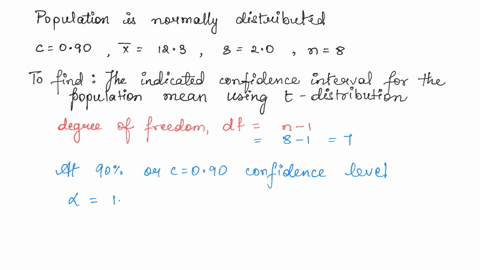 Population is normally distributed
c = 0.90 , x̄ = 12.3 , s = 2.0 , n = 8
To find : The indicated confidence interval for the
population mean using t - distribution
degree of freedom, df = n - 1
= 8 - 1 = 7
At 90% or c = 0.90 confidence level
α = 1.